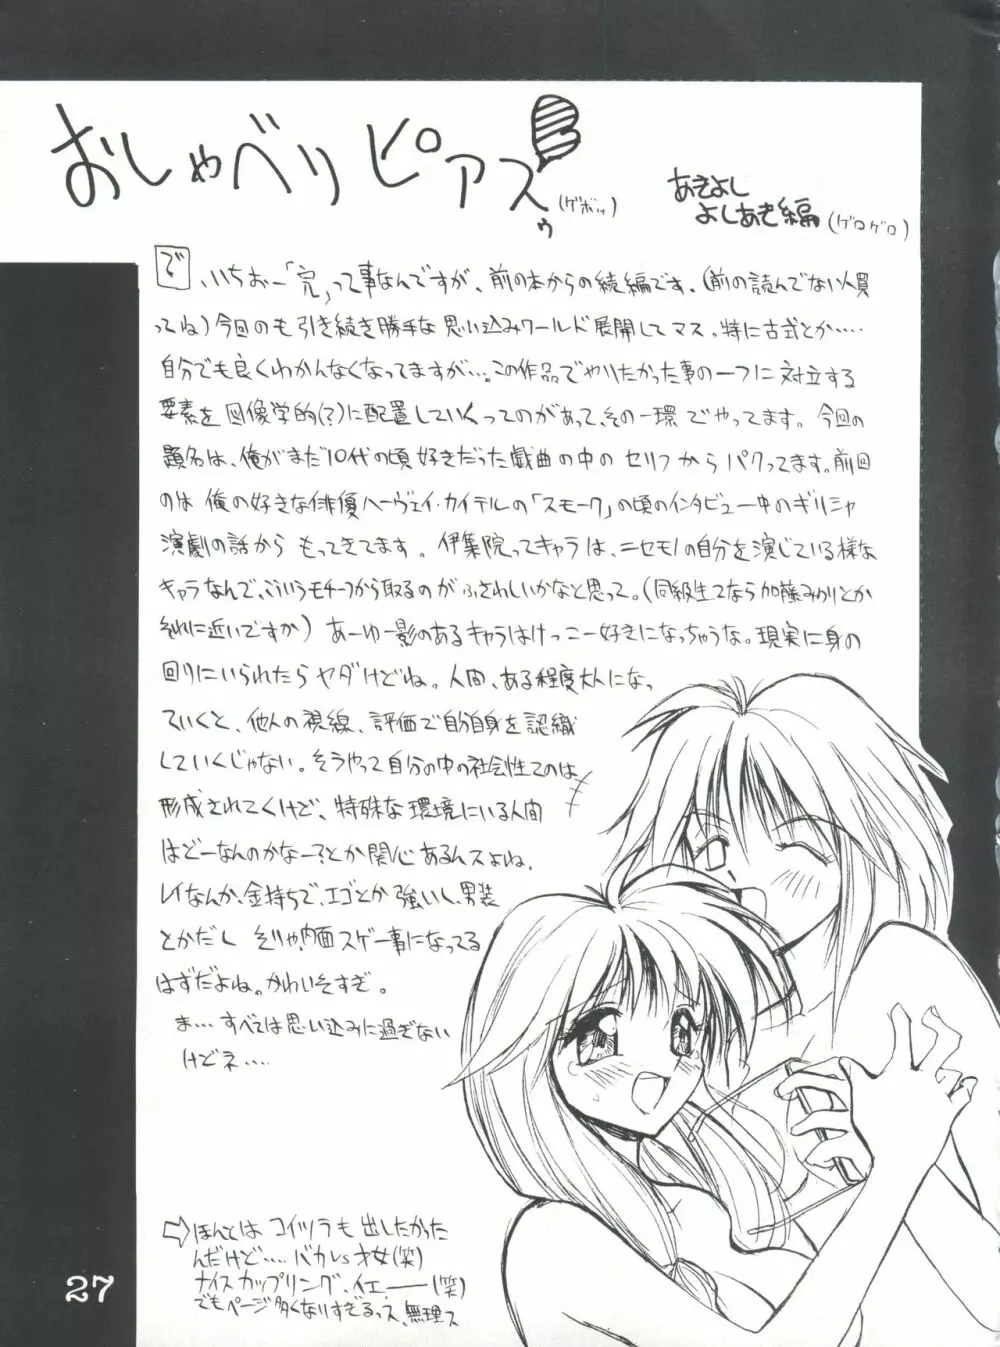 おしゃべりピアスゥ(ゲボッ)
あきよし
よしあき編(ゲロゲロ)
で、いちおー「完」って事なんですが、前の本からの続編です。(前の読んでない人買
ってね)今回のも引き続き勝手な思い込みワールド展開してマス。特に古式とか‥‥‥
自分でも良くわかんなくなってますが‥‥。この作品でやりたかった事の一つに対立する
要素を図像学的(?)に配置していくってのがあって、その一環でやってます。今回の
題名は、俺がまだ10代の頃好きだった戯曲の中のセリフからパクってます。前回
のは俺の好きな俳優ハーヴェイ・カイテルの「スモーク」の頃のインタビュー中のギリシャ
演劇の話からもってきてます。伊集院ってキャラは、ニセモノの自分を演じている様な
キャラなんで、こういうモチーフから取るのがふさわしいかなと思って。(同級生2なら加藤みのりとか
それに近いですか)あーゆー影のあるキャラはけっこー好きになっちゃうな。現実に身の
回りにいられたらヤダけどね。人間、ある程度大人になっ
ていくと、他人の視線、評価で自分自身を認識
していくじゃない。そうやって自分の中の社会性てのは
形成されてくけど、特殊な環境にいる人間
はどーなんのかなー?とか関心あるんスよね。
レイなんか、金持ちで、エゴとか強いし、男装
とかだし そりゃ、内面スゲー事になってる
はずだよね。かわいそすぎ。
ま‥‥すべては思い込みに過ぎない
けどネ‥‥
⇨ほんとはコイツラも出したかった
んだけど‥‥バカvs才女(笑)
ナイスカップリング、イエー——(笑)
でもページ多くなりすぎるっス、無理ス
27